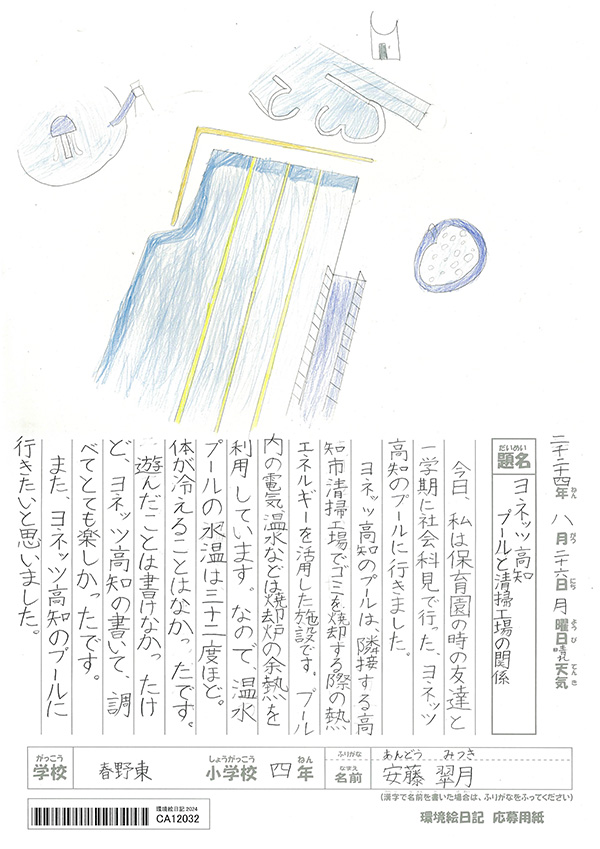 二千二十四年 八月 二十六日 月曜日 晴れ 天気
ねん がつ にち ようび てんき
だいめい
題名
ヨネッツ高知
プールと清掃工場の関係
今日、私は保育園の時の友達と
一学期に社会科見で行った、ヨネッツ
高知のプールに行きました。
ヨネッツ高知のプールは、隣接する高
知市清掃工場でゴミを焼却する際の熱
エネルギーを活用した施設です。プール
内の電気、温水などは焼却炉の余熱を
利用しています。なので、温水
プールの水温は三十二度ほど。
体が冷えることはなかったです。
遊んだことは書けなかったけ
ど、ヨネッツ高知の書いて、調
べてとても楽しかったです。
また、ヨネッツ高知のプールに
行きたいと思いました。
がっこう しょうがっこう ねん ふりがな あんどう みつき
学校 春野東 小学校 四年 なまえ 名前 安藤 翠月
(漢字で名前を書いた場合は、ふりがなをふってください)
環境絵日記 2024
CA12032
環境絵日記 応募用紙